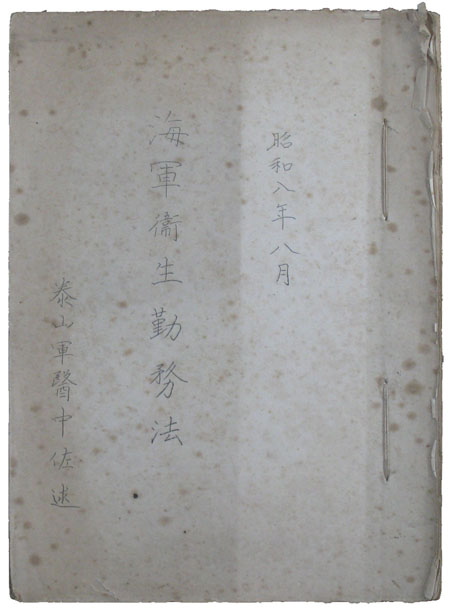 昭和八年八月
海軍衛生勤務法
泰山軍醫中佐述